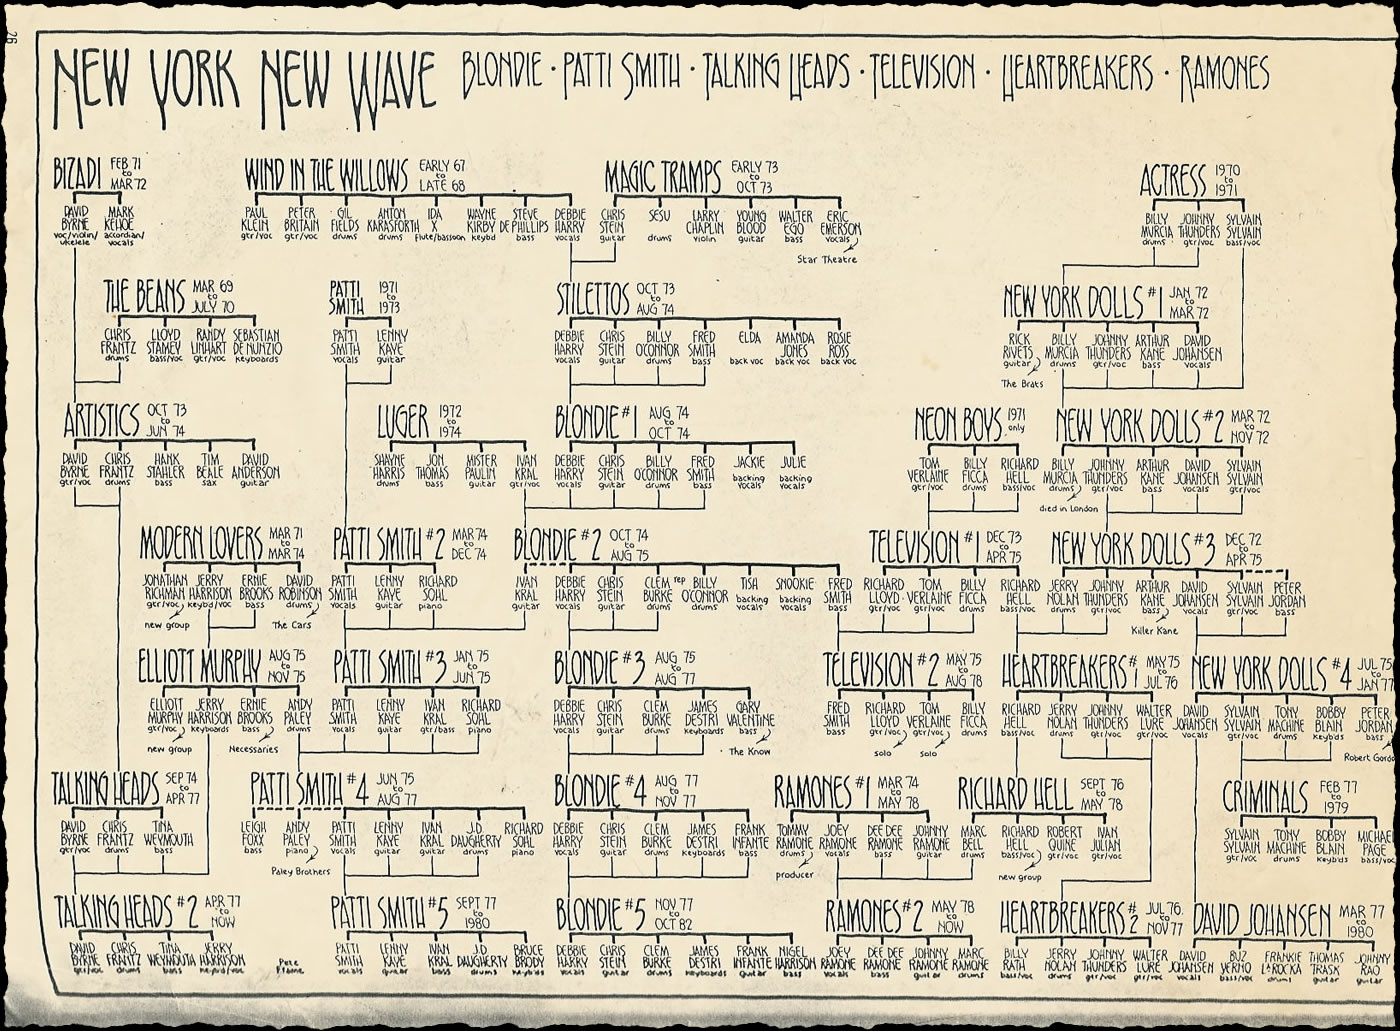 26
NEW YORK NEW WAVE
BLONDIE · PATTI SMITH · TALKING HEADS · TELEVISION · HEARTBREAKERS · RAMONES
BIZADI FEB 71 to MAR 72
DAVID BYRNE voc/violin/ukelele
MARK KEHOE accordian/vocals
WIND IN THE WILLOWS EARLY 67 to LATE 68
PAUL KLEIN gtr/voc
PETER BRITAIN gtr/voc
GIL FIELDS drums
ANTON KARASFORTH drums
IDA X flute/bassoon
WAYNE KIRBY keybd
STEVE DE PHILLIPS bass
DEBBIE HARRY vocals
MAGIC TRAMPS EARLY 73 to OCT 73
CHRIS STEIN guitar
SESU drums
LARRY CHAPLIN violin
YOUNG BLOOD guitar
WALTER EGO bass
ERIC EMERSON vocals
Star Theatre
ACTRESS 1970 to 1971
BILLY MURCIA drums
JOHNNY THUNDERS gtr/voc
SYLVAIN SYLVAIN bass/voc
THE BEANS MAR 69 to JULY 70
CHRIS FRANTZ drums
LLOYD STAMEY bass/voc
RANDY LINHART gtr/voc
SEBASTIAN DE NUNZIO keyboards
PATTI SMITH 1971 to 1973
PATTI SMITH vocals
LENNY KAYE guitar
STILETTOS OCT 73 to AUG 74
DEBBIE HARRY vocals
CHRIS STEIN guitar
BILLY O'CONNOR drums
FRED SMITH bass
ELDA back voc
AMANDA JONES back voc
ROSIE ROSS back voc
NEW YORK DOLLS #1 JAN 72 to MAR 72
RICK RIVETS guitar
The Brats
BILLY MURCIA drums
JOHNNY THUNDERS gtr/voc
ARTHUR KANE bass
DAVID JOHANSEN vocals
ARTISTICS OCT 73 to JUN 74
DAVID BYRNE gtr/voc
CHRIS FRANTZ drums
HANK STAHLER bass
TIM BEALE sax
DAVID ANDERSON guitar
LUGER 1972 to 1974
SHAYNE HARRIS drums
JON THOMAS bass
MISTER PAULIN guitar
IVAN KRAL gtr/voc
BLONDIE #1 AUG 74 to OCT 74
DEBBIE HARRY vocals
CHRIS STEIN guitar
BILLY O'CONNOR drums
FRED SMITH bass
JACKIE backing vocals
JULIE backing vocals
NEON BOYS 1971 only
TOM VERLAINE gtr/voc
BILLY FICCA drums
RICHARD HELL bass/voc
NEW YORK DOLLS #2 MAR 72 to NOV 72
BILLY MURCIA drums
died in London
JOHNNY THUNDERS gtr/voc
ARTHUR KANE bass
DAVID JOHANSEN vocals
SYLVAIN SYLVAIN gtr/voc
MODERN LOVERS MAR 71 to MAR 74
JONATHAN RICHMAN gtr/voc
new group
JERRY HARRISON keybd/voc
ERNIE BROOKS bass
DAVID ROBINSON drums
The Cars
PATTI SMITH #2 MAR 74 to DEC 74
PATTI SMITH vocals
LENNY KAYE guitar
RICHARD SOHL piano
BLONDIE #2 OCT 74 to AUG 75
IVAN KRAL guitar
DEBBIE HARRY vocals
CHRIS STEIN guitar
CLEM BURKE drums
rep BILLY O'CONNOR drums
TISH backing vocals
SNOOKIE backing vocals
FRED SMITH bass
TELEVISION #1 DEC 73 to APR 75
RICHARD LLOYD gtr/voc
TOM VERLAINE gtr/voc
BILLY FICCA drums
RICHARD HELL bass/voc
NEW YORK DOLLS #3 DEC 72 to APR 75
JERRY NOLAN drums
JOHNNY THUNDERS gtr/voc
ARTHUR KANE bass
Killer Kane
DAVID JOHANSEN vocals
SYLVAIN SYLVAIN gtr/voc
PETER JORDAN bass
ELLIOTT MURPHY AUG 75 to NOV 75
ELLIOTT MURPHY gtr/voc
new group
JERRY HARRISON keyboards
ERNIE BROOKS bass
Necessaries
ANDY PALEY drums
PATTI SMITH #3 JAN 75 to JUN 75
PATTI SMITH vocals
LENNY KAYE guitar
IVAN KRAL gtr/bass
RICHARD SOHL piano
BLONDIE #3 AUG 75 to AUG 77
DEBBIE HARRY vocals
CHRIS STEIN guitar
CLEM BURKE drums
JAMES DESTRI keyboards
GARY VALENTINE bass
The Know
TELEVISION #2 MAY 75 to AUG 78
FRED SMITH bass
RICHARD LLOYD gtr/voc
solo
TOM VERLAINE gtr/voc
solo
BILLY FICCA drums
HEARTBREAKERS #1 MAY 75 to JUL 76
RICHARD HELL bass/voc
JERRY NOLAN drums
JOHNNY THUNDERS gtr/voc
WALTER LURE gtr/voc
NEW YORK DOLLS #4 JUL 75 to JAN 77
DAVID JOHANSEN vocals
SYLVAIN SYLVAIN gtr/voc
TONY MACHINE drums
BOBBY BLAIN keyb'ds
PETER JORDAN bass
Robert Gordo
TALKING HEADS SEP 74 to APR 77
DAVID BYRNE gtr/voc
CHRIS FRANTZ drums
TINA WEYMOUTH bass
PATTI SMITH #4 JUN 75 to AUG 77
LEIGH FOXX bass
ANDY PALEY piano
Paley Brothers
PATTI SMITH vocals
LENNY KAYE guitar
IVAN KRAL guitar
J.D. DAUGHERTY drums
RICHARD SOHL piano
BLONDIE #4 AUG 77 to NOV 77
DEBBIE HARRY vocals
CHRIS STEIN guitar
CLEM BURKE drums
JAMES DESTRI keyboards
FRANK INFANTE bass
RAMONES #1 MAR 74 to MAY 78
TOMMY RAMONE drums
producer
JOEY RAMONE vocals
DEE DEE RAMONE bass
JOHNNY RAMONE guitar
RICHARD HELL SEPT 76 to MAY 78
MARC BELL drums
RICHARD HELL bass/voc
new group
ROBERT QUINE gtr/voc
IVAN JULIAN gtr/voc
CRIMINALS FEB 77 to 1979
SYLVAIN SYLVAIN gtr/voc
TONY MACHINE drums
BOBBY BLAIN keyb'ds
MICHAE PAGE bass/voc
TALKING HEADS #2 APR 77 to NOW
DAVID BYRNE gtr/voc
CHRIS FRANTZ drums
TINA WEYMOUTH bass
JERRY HARRISON keybd/voc
Pete Frame
PATTI SMITH #5 SEPT 77 to 1980
PATTI SMITH vocals
LENNY KAYE guitar
IVAN KRAL bass
J.D. DAUGHERTY drums
BRUCE BRODY keyb'ds
BLONDIE #5 NOV 77 to OCT 82
DEBBIE HARRY vocals
CHRIS STEIN guitar
CLEM BURKE drums
JAMES DESTRI keyboards
FRANK INFANTE guitar
NIGEL HARRISON bass
RAMONES #2 MAY 78 to NOW
JOEY RAMONE vocals
DEE DEE RAMONE bass
JOHNNY RAMONE guitar
MARC RAMONE drums
HEARTBREAKERS #2 JUL 76 to NOV 77
BILLY RATH bass/voc
JERRY NOLAN drums
JOHNNY THUNDERS gtr/voc
WALTER LURE gtr/voc
DAVID JOHANSEN MAR 77 to 1980
DAVID JOHANSEN vocals
BUZ VERNO bass/voc
FRANKIE LA ROCKA drums
THOMAS TRASK guitar
JOHNNY RAO guitar